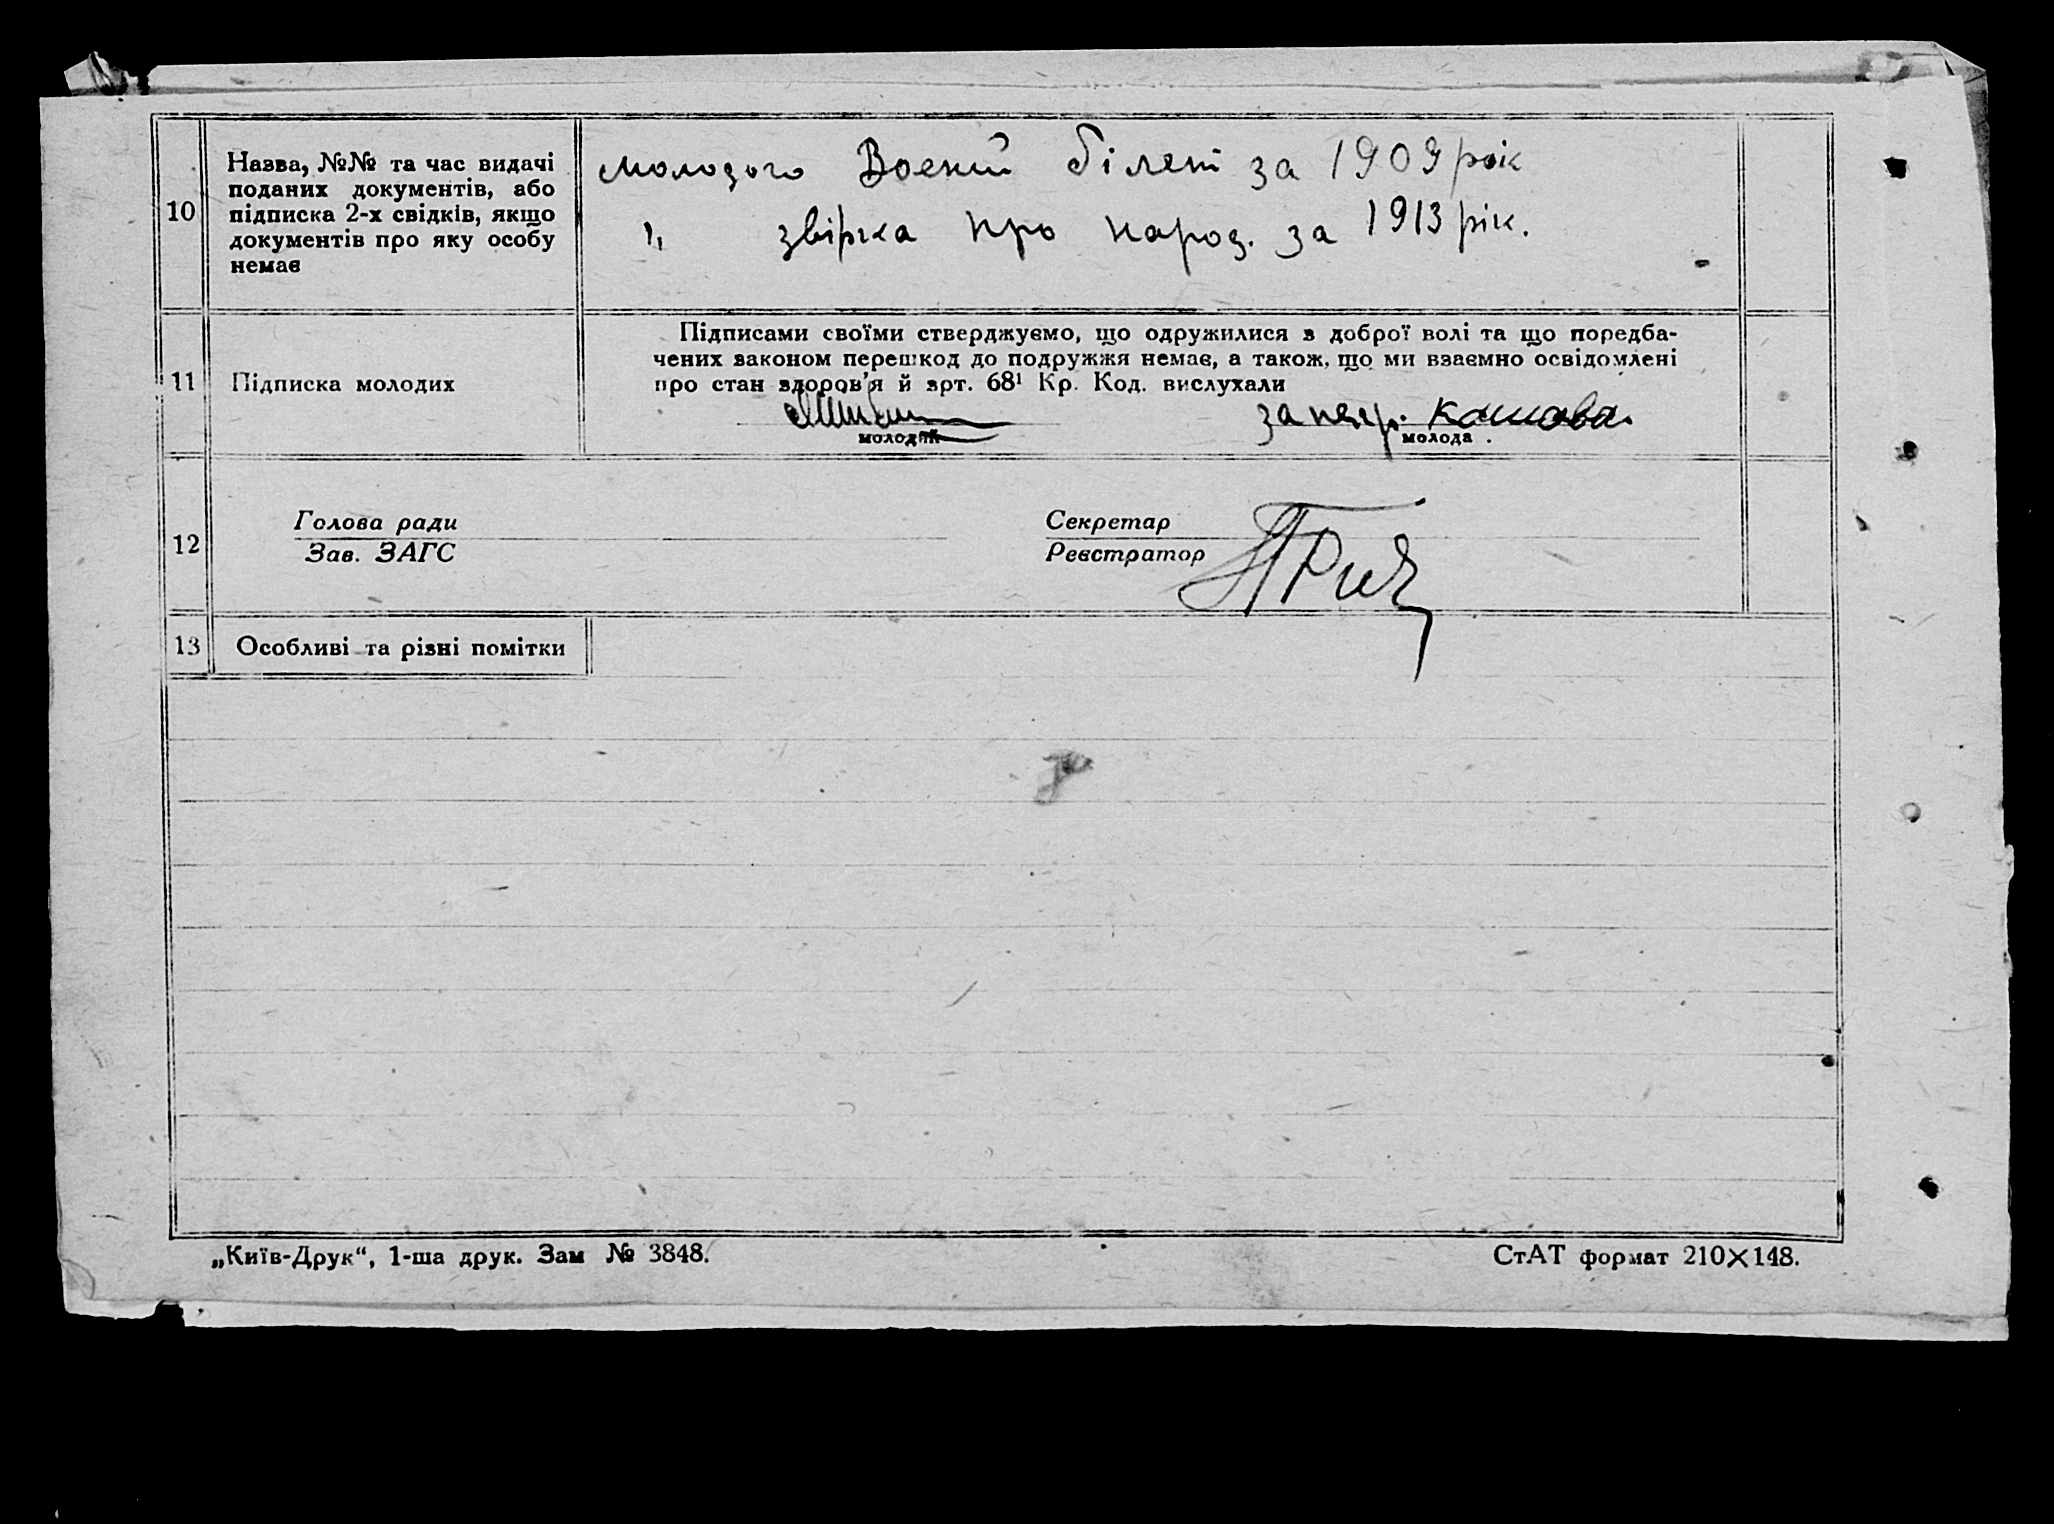 10
Назва, №№ та час видачі
поданих документів, або
підписка 2-х свідків, якщо
документів про яку особу
немає
молодого Воений білет за 1909 рік
" звірка про народ. за 1913 рік.
11
Підписка молодих
Підписами своїми стверджуємо, що одружилися з доброї волі та що поредба-
чених законом перешкод до подружжя немає, а також, що ми взаємно освідомлені
про стан здоров'я й арт. 68¹ Кр. Код. вислухали
молодий
молода
12
Голова ради
Зав. ЗАГС
Секретар
Реєстратор
13
Особливі та різні помітки
„Київ-Друк“, 1-ша друк. Зам № 3848.
СтАТ формат 210×148.